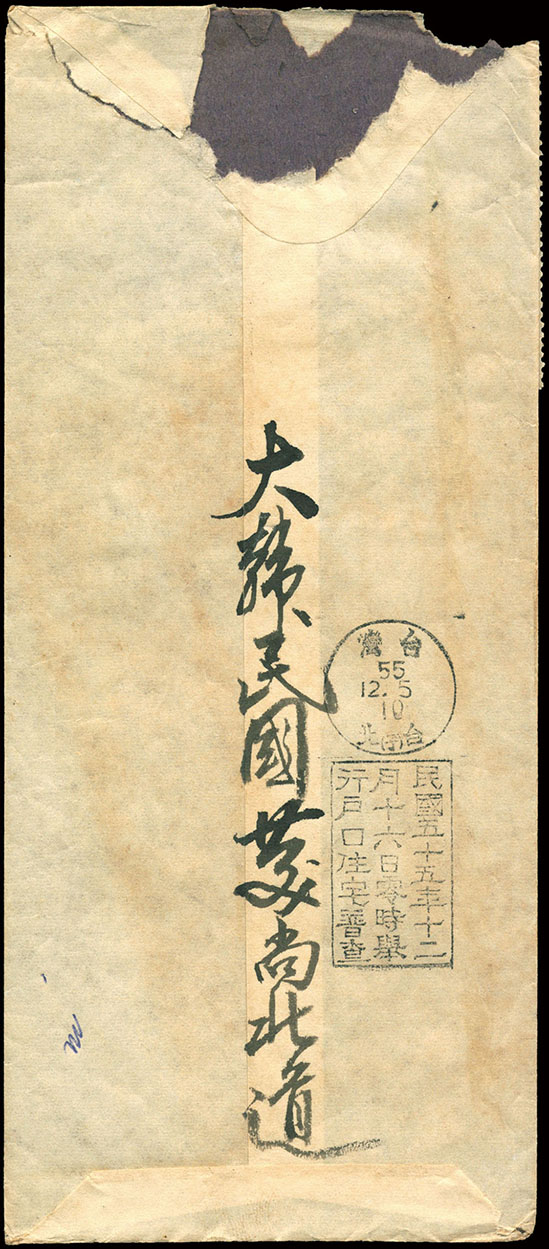 大韓民國慶尚北道
台灣
55
12.5
10
台北
民國五十五年十二
月十六日零時舉
行戶口住宅普查